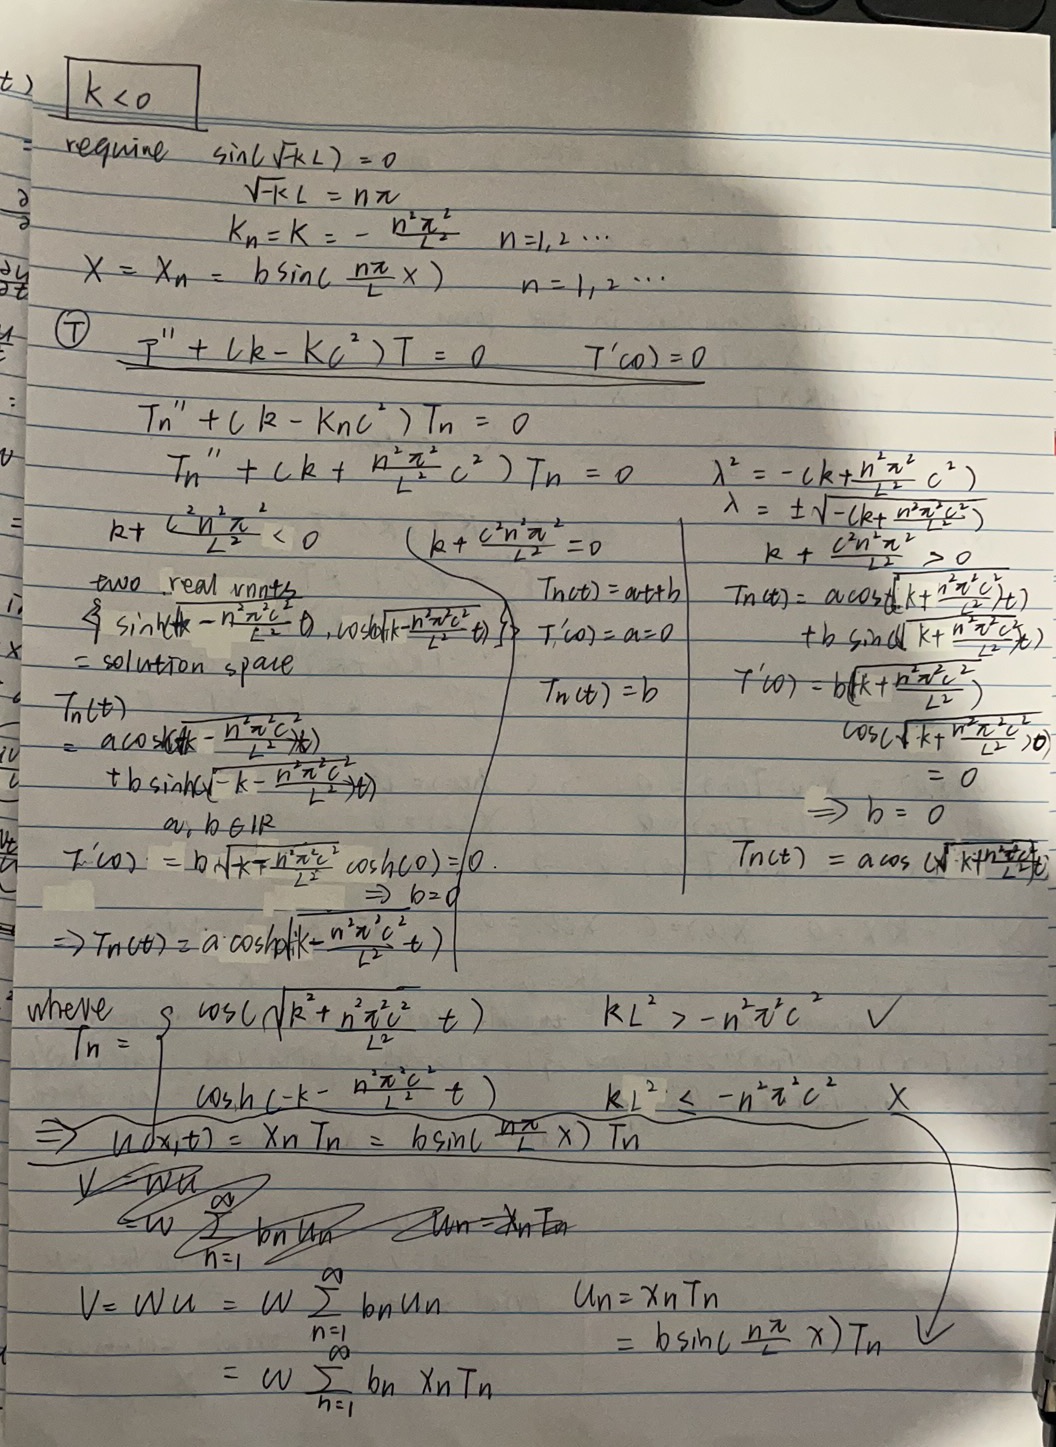 k<0
require sin(√-k L) = 0
√-k L = nπ
Kn = K = - n²π²/L² n=1,2 ...
X = Xn = b sin( nπ/L x) n=1,2 ...
Ⓣ T'' + (k - Kc²)T = 0 T'(0) = 0
Tn'' + (k - Knc²)Tn = 0
Tn'' + (k + n²π²/L² c²)Tn = 0
λ² = -(k + n²π²/L² c²)
λ = ±√-(k + n²π²c²/L²)
k + c²n²π²/L² < 0
two real roots
{ sinh(√-k - n²π²c²/L² t), cosh(√-k - n²π²c²/L² t) }
= solution space
Tn(t)
= a cosh(√-k - n²π²c²/L² t)
+ b sinh(√-k - n²π²c²/L² t)
a, b ∈ IR
T'(0) = b√-k - n²π²c²/L² cosh(0) = 0.
⇒ b=0
⇒ Tn(t) = a cosh(√-k - n²π²c²/L² t)
k + c²n²π²/L² = 0
Tn(t) = at+b
T'(0) = a = 0
Tn(t) = b
k + c²n²π²/L² > 0
Tn(t) = a cos(√k + n²π²c²/L² t)
+ b sin(√k + n²π²c²/L² t)
T'(0) = b(√k + n²π²c²/L²)
cos(√k + n²π²c²/L² 0)
= 0
⇒ b = 0
Tn(t) = a cos(√k + n²π²c²/L² t)
where Tn = { cos(√k² + n²π²c²/L² t) kL² > -n²π²c² ✓
cosh(-k - n²π²c²/L² t) kL² ≤ -n²π²c² X
⇒ u(x,t) = Xn Tn = b sin( nπ/L x) Tn
V = wu
= w ∑ n=1 ∞ bn un un = Xn Tn
V = wu = w ∑ n=1 ∞ bn un un = Xn Tn
= b sin( nπ/L x) Tn
= w ∑ n=1 ∞ bn Xn Tn